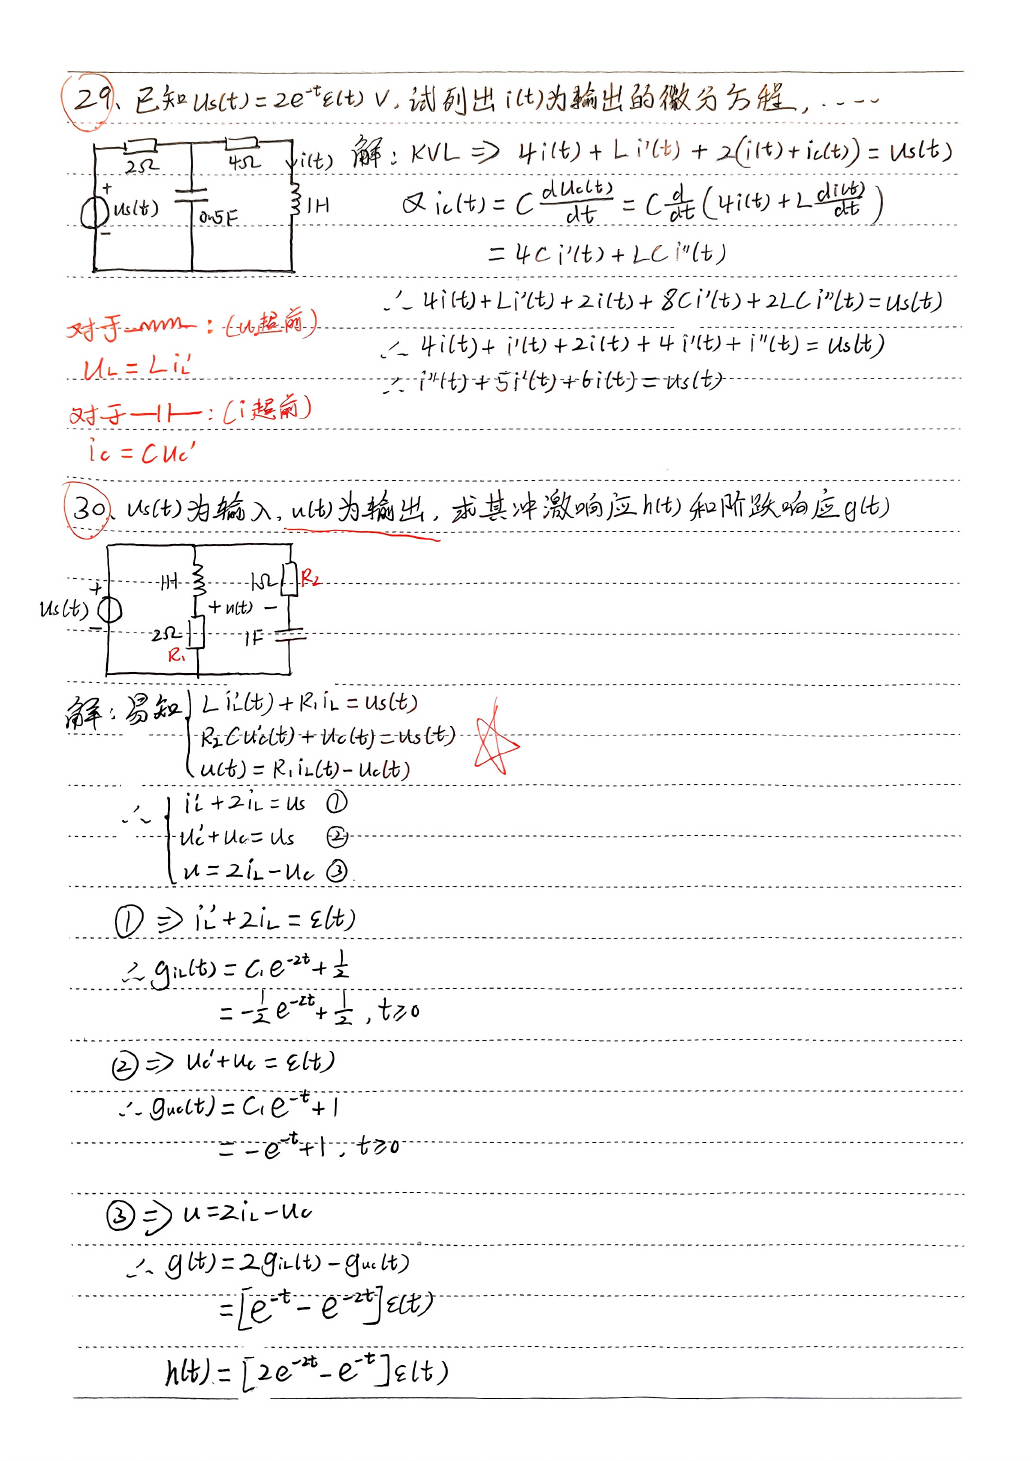 29、已知us(t)=2e⁻ᵗε(t) V, 试列出i(t)为输出的微分方程, ....
2Ω 4Ω i(t)
+ us(t) - 0.5F 1H
解: KVL ⇒ 4i(t)+Li'(t)+2(i(t)+ic(t))=us(t)
又 ic(t)=C duc(t)/dt = C d/dt (4i(t)+L di(t)/dt)
=4Ci'(t)+LCi''(t)
∴ 4i(t)+Li'(t)+2i(t)+8Ci'(t)+2LCi''(t)=us(t)
∴ 4i(t)+i'(t)+2i(t)+4i'(t)+i''(t)=us(t)
∴ i''(t)+5i'(t)+6i(t)=us(t)
对于 : (u超前)
uL=LiL'
对于 : (i超前)
ic=Cuc'
30、us(t)为输入, u(t)为输出, 求其冲激响应h(t)和阶跃响应g(t)
1H 1Ω R2
+ us(t) - + u(t) -
2Ω 1F
R1
解: 易知 { LiL'(t)+R1iL=us(t)
R2Cuc'(t)+uc(t)=us(t)
u(t)=R1iL(t)-uc(t)
∴ { iL'+2iL=us ①
uc'+uc=us ②
u=2iL-uc ③
① ⇒ iL'+2iL=ε(t)
∴ giL(t)=C1e⁻²ᵗ+1/2
=-1/2e⁻²ᵗ+1/2, t≥0
② ⇒ uc'+uc=ε(t)
∴ guc(t)=C1e⁻ᵗ+1
=-e⁻ᵗ+1, t≥0
③ ⇒ u=2iL-uc
∴ g(t)=2giL(t)-guc(t)
=[e⁻ᵗ-e⁻²ᵗ]ε(t)
h(t)=[2e⁻²ᵗ-e⁻ᵗ]ε(t)